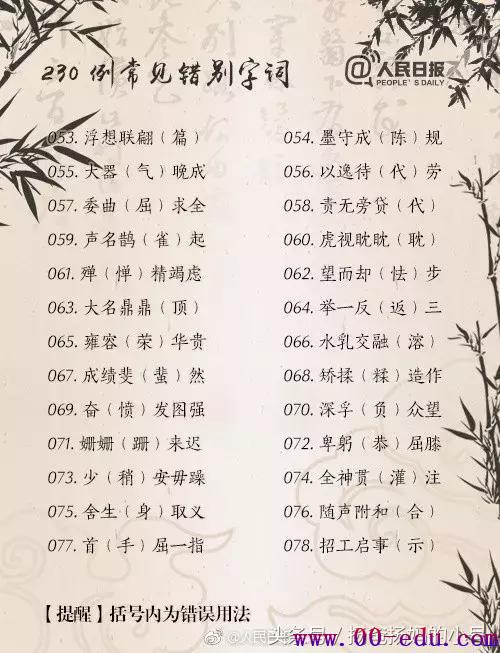 230例常见错别字词
@人民日报
PEOPLE'S DAILY
053. 浮想联翩（篇） 054. 墨守成（陈）规
055. 大器（气）晚成 056. 以逸待（代）劳
057. 委曲（屈）求全 058. 责无旁贷（代）
059. 声名鹊（雀）起 060. 虎视眈眈（耽）
061. 殚（惮）精竭虑 062. 望而却（怯）步
063. 大名鼎鼎（顶） 064. 举一反（返）三
065. 雍容（荣）华贵 066. 水乳交融（溶）
067. 成绩斐（蜚）然 068. 矫揉（糅）造作
069. 奋（愤）发图强 070. 深孚（负）众望
071. 姗姗（跚）来迟 072. 卑躬（恭）屈膝
073. 少（稍）安毋躁 074. 全神贯（灌）注
075. 舍生（身）取义 076. 随声附和（合）
077. 首（手）屈一指 078. 招工启事（示）
【提醒】括号内为错误用法
www.00-edu.com